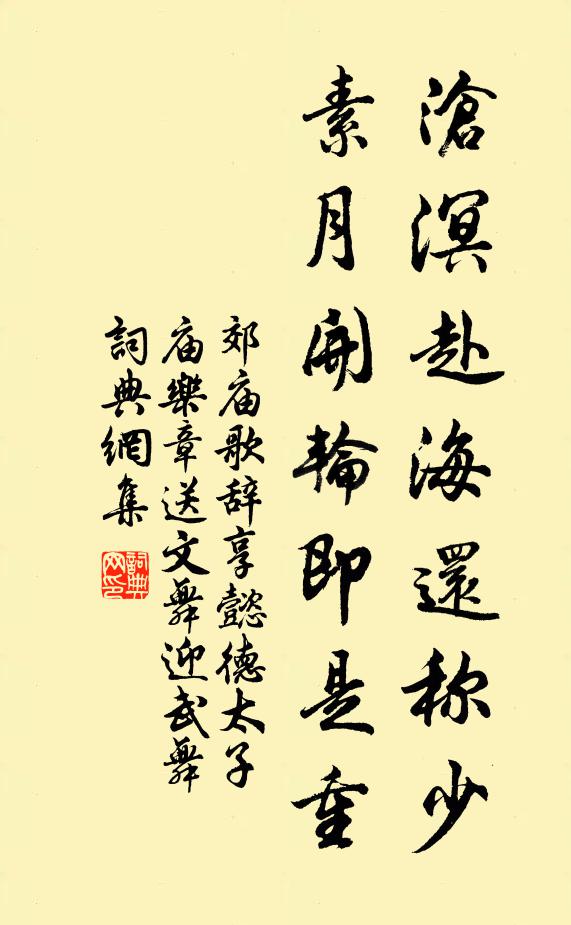 滄溟赴海還称少
素月開輪即是重
郊庙歌辞享懿德太子
庙樂章送文舞迎武舞
詞典網集
詞典网印